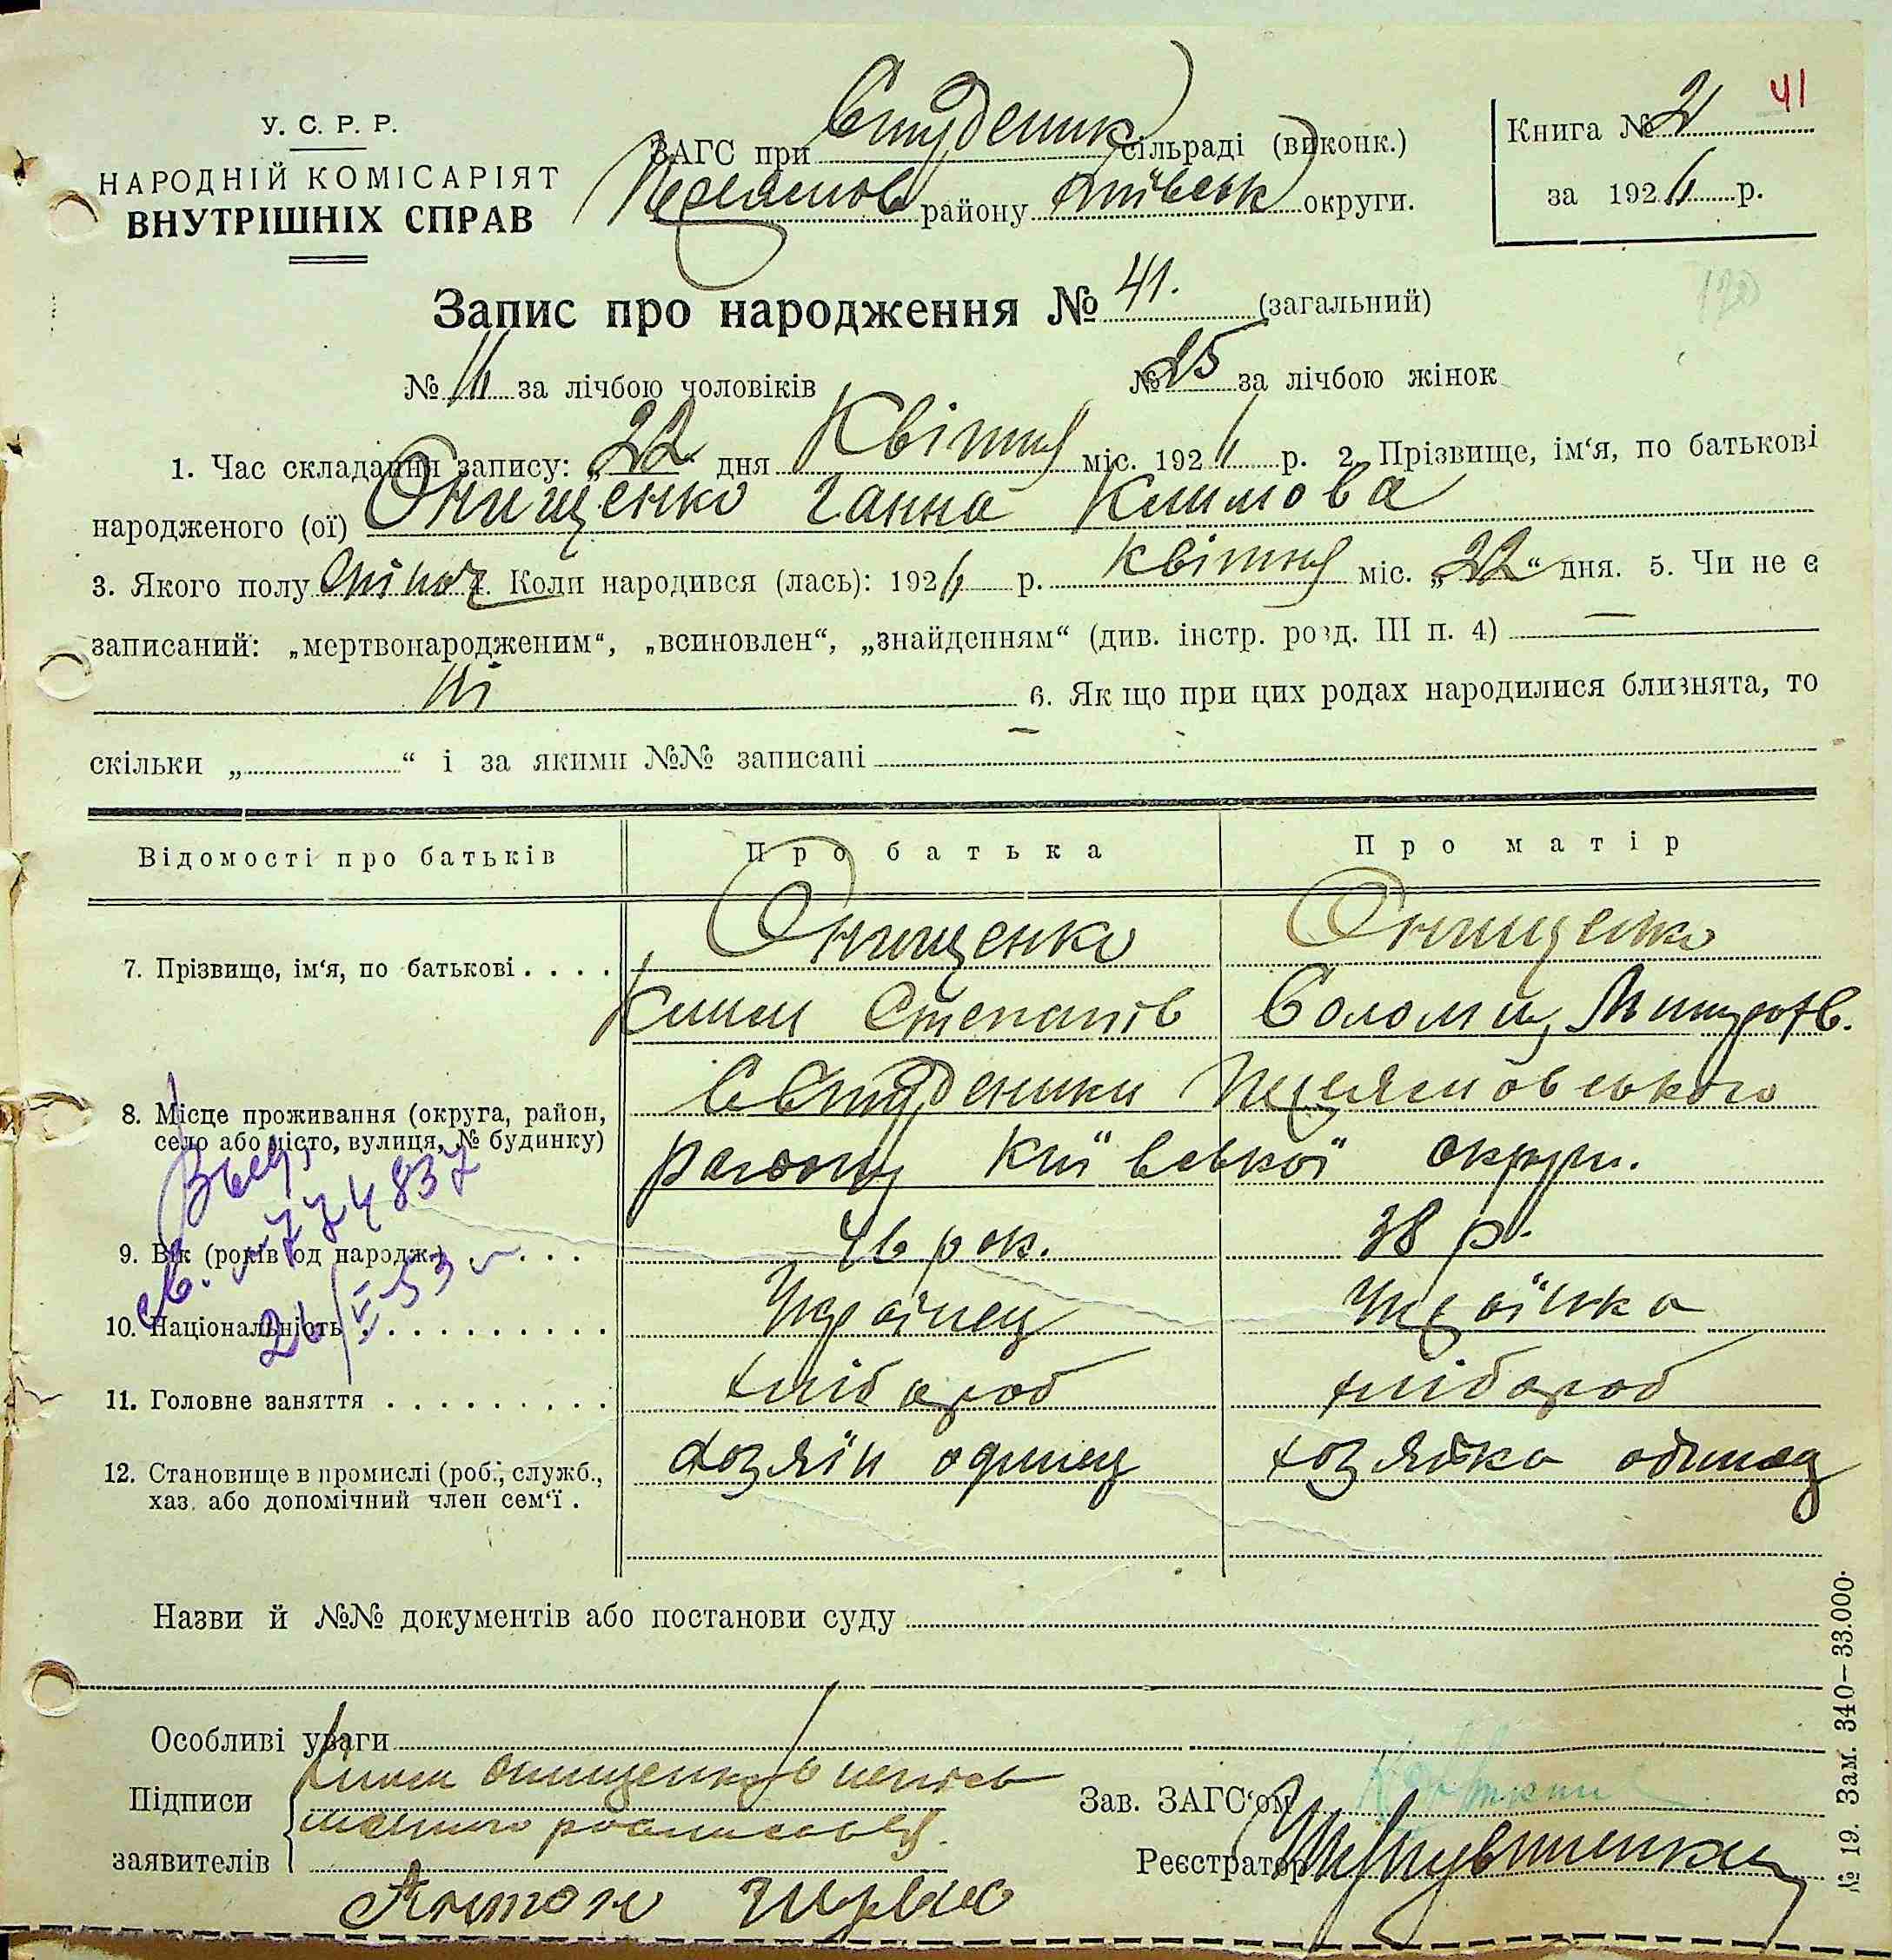 У. С. Р. Р.
НАРОДНІЙ КОМІСАРІЯТ
ВНУТРІШНІХ СПРАВ
ЗАГС при Студеник сільраді (виконк.)
района району Київськ округи.
Книга № 2 41
за 1926 р.
Запис про народження № 41. (загальний)
№ 16 за лічбою чоловіків № 25 за лічбою жінок
1. Час складання запису: „22“ дня Квітня міс. 1926 р. 2. Прізвище, ім‘я, по батькові
народженого (ої) Онищенко Ганна Климова
3. Якого полу жіноч 4. Коли народився (лась): 1926 р. Квітня міс. „22“ дня. 5. Чи не є
записаний: „мертвонародженим“, „всиновлен“, „знайденням“ (див. інстр. розд. III п. 4) —
Ні 6. Як що при цих родах народилися близнята, то
скільки „ “ і за якими №№ записані —
Відомості про батьків Про батька Про матір
7. Прізвище, ім‘я, по батькові . . . . Онищенко Онищенко
Клим Степанів Соломія
8. Місце проживання (округа, район, село або місто, вулиця, № будинку) С Студеники Переяславського
району Київської округи.
9. Вік (років од народж.) . . . 46 рок. 38 р.
10. Національність . . . . . . . . . . Українець Українка
11. Головне заняття . . . . . . . . . . хлібороб хлібороб
12. Становище в промислі (роб., служб., хаз. або допомічний член сем‘ї . хозяїн одинец хозяйка
Выд.
св. 774837
26/V-53
Назви й №№ документів або постанови суду
Особливі уваги
Підписи заявителів
Клим Онищенко а за неписьменного росписався
Антон
Зав. ЗАГС‘ом
Реєстратор
№ 19. Зам. 340—33.000.